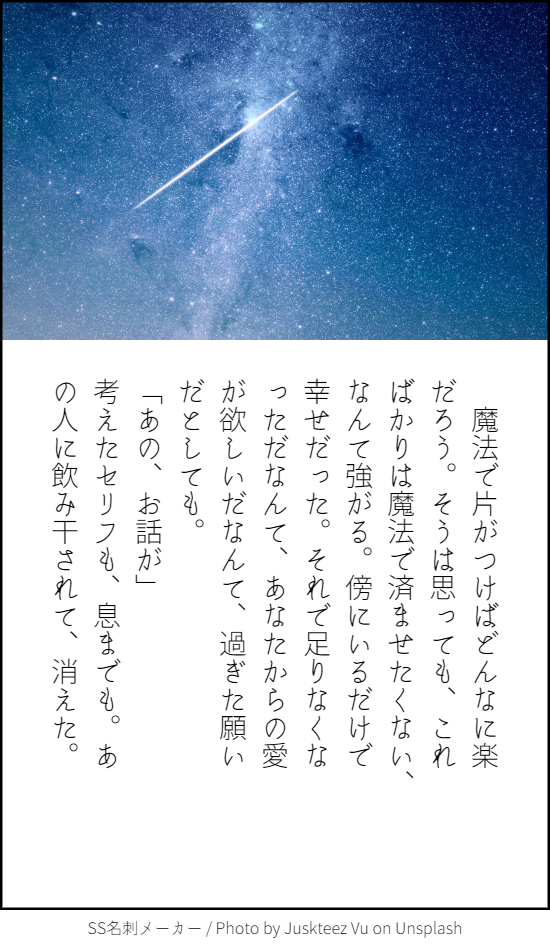 魔法で片がつけばどんなに楽
だろう。そうは思っても、これ
ばかりは魔法で済ませたくない、
なんて強がる。傍にいるだけで
幸せだった。それで足りなくな
っただなんて、あなたからの愛
が欲しいだなんて、過ぎた願い
だとしても。
「あの、お話が」
考えたセリフも、息までも。あ
の人に飲み干されて、消えた。
SS名刺メーカー / Photo by Juskteez Vu on Unsplash